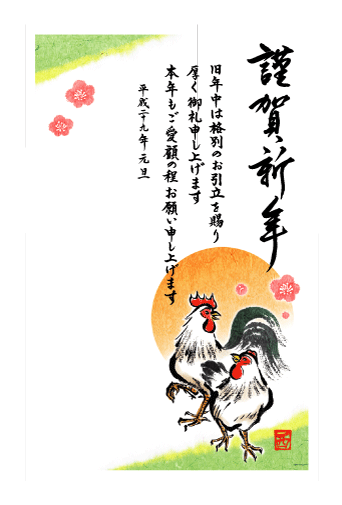 謹賀新年
旧年中は格別のお引立を賜り
厚く御礼申し上げます
本年もご愛顧の程お願い申し上げます
平成二十九年 元旦
酉